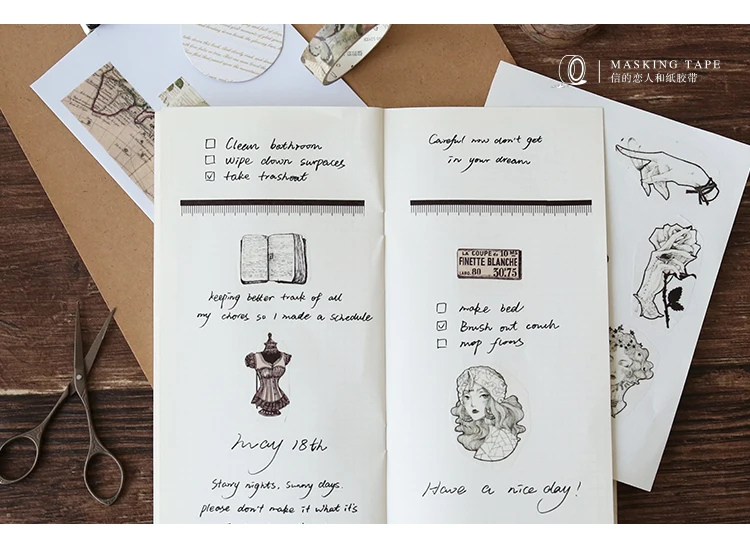 MASKING TAPE
信的恋人和纸胶带
Clean bathroom
wipe down surpaces
take trashout
keeping better track of all
my chores so I made a schedule
may 18th
Starry nights, sunny days.
please don't make it what it's
Careful now don't get
in your dream
LA COUPE de 10 MS
FINETTE BLANCHE
LARG. 80 30.75
make bed
Brush out couch
mop floors
Have a nice day!